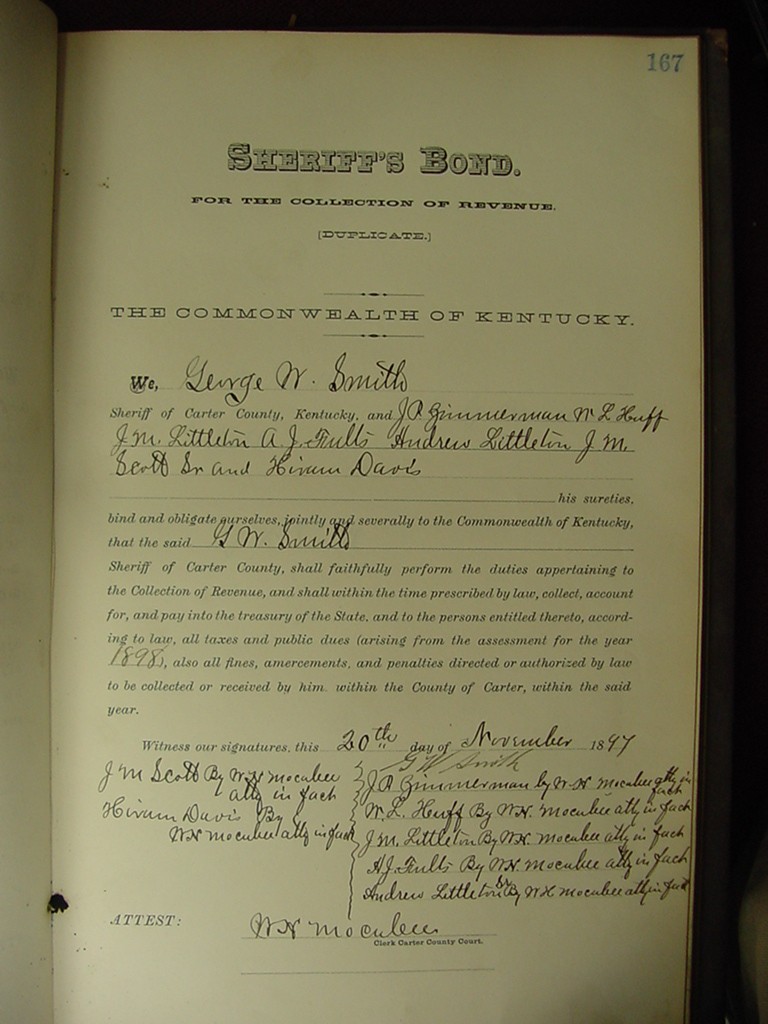 167
SHERIFF'S BOND.
FOR THE COLLECTION OF REVENUE.
(DUPLICATE.)
THE COMMONWEALTH OF KENTUCKY.
We, George W. Smith
Sheriff of Carter County, Kentucky, and J. P. Zimmerman W L Huff
J. M. Littleton A. J. Fults Andrew Littleton J. M.
Scott Sr and Hiram Davis
his sureties,
bind and obligate ourselves, jointly and severally to the Commonwealth of Kentucky,
that the said G W. Smith
Sheriff of Carter County, shall faithfully perform the duties appertaining to
the Collection of Revenue, and shall within the time prescribed by law, collect, account
for, and pay into the treasury of the State, and to the persons entitled thereto, accord-
ing to law, all taxes and public dues (arising from the assessment for the year
1898), also all fines, amercements, and penalties directed or authorized by law
to be collected or received by him within the County of Carter, within the said
year.
Witness our signatures, this 20th day of November 1897
G W Smith
J M Scott By W. H mocabee
atty in fach
Hiram Davis By
W H mocabee atty in fach
J. P. Zimmerman by W. H mocabee atty in fach
W. L. Huff By W H. mocabee atty in fach
J. M. Littleton By W H. mocabee atty in fach
A J. Fults By W H. mocabee atty in fach
Andrew Littleton Sr By W H mocabee atty in fach
ATTEST: W H mocabee
Clerk Carter County Court.